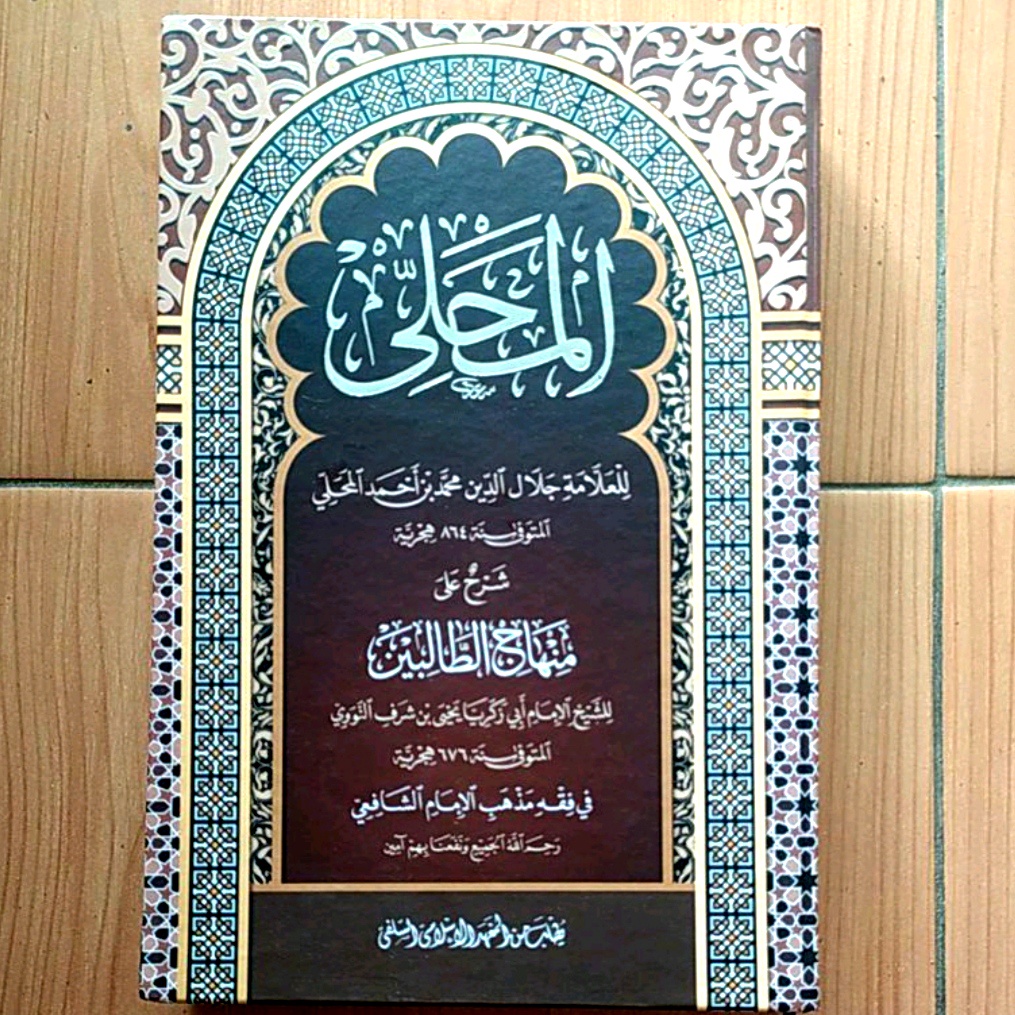 المَحَلِّيْ
لِلْعَلَّامَةِ جَلَالِ الدِّينِ مُحَمَّد بْنِ أَحْمَدَ الْمَحَلِّيّ
المتوفى سنة ٨٦٤ هِجْرِيَّة
شَرْحٌ عَلَى
مِنْهَاجُ الطَّالِبِيْنَ
لِلشَّيْخِ الإِمَامِ أَبِي زَكَرِيَا يَحْيَى بْنِ شَرَفِ النَّوَوِيّ
المتوفى سنة ٦٧٦ هِجْرِيَّة
فِي فِقْهِ مَذْهَبِ الإِمَامِ الشَّافِعِيّ
رَحِمَ اللهُ الجَمِيْعَ وَنَفَعَنَا بِهِمْ آمِين
يطلب من المعهد الإسلامي السلفي